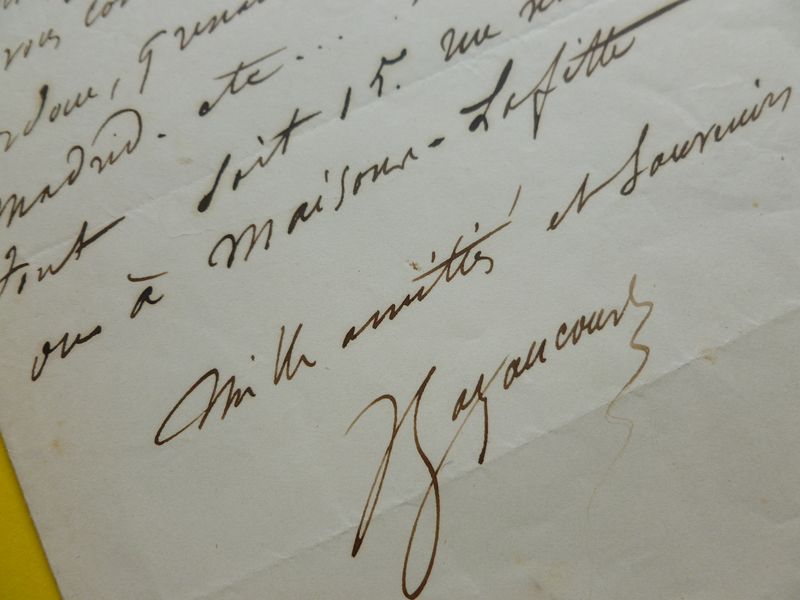 vous con
rdoue, Grena
Madrid. etc...
tout soit 15. rue
ou à Maisons-Lafitte
Mille amitiés et souvenirs